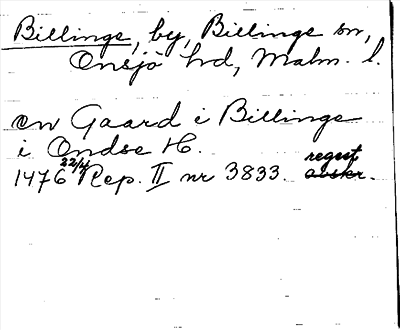 Billinge, by, Billinge sn,
Onsjö hd, Malm. l.
en Gaard i Billinge
i Ondse H.
1476 22/4 Rep. II nr 3833. regest avskr.